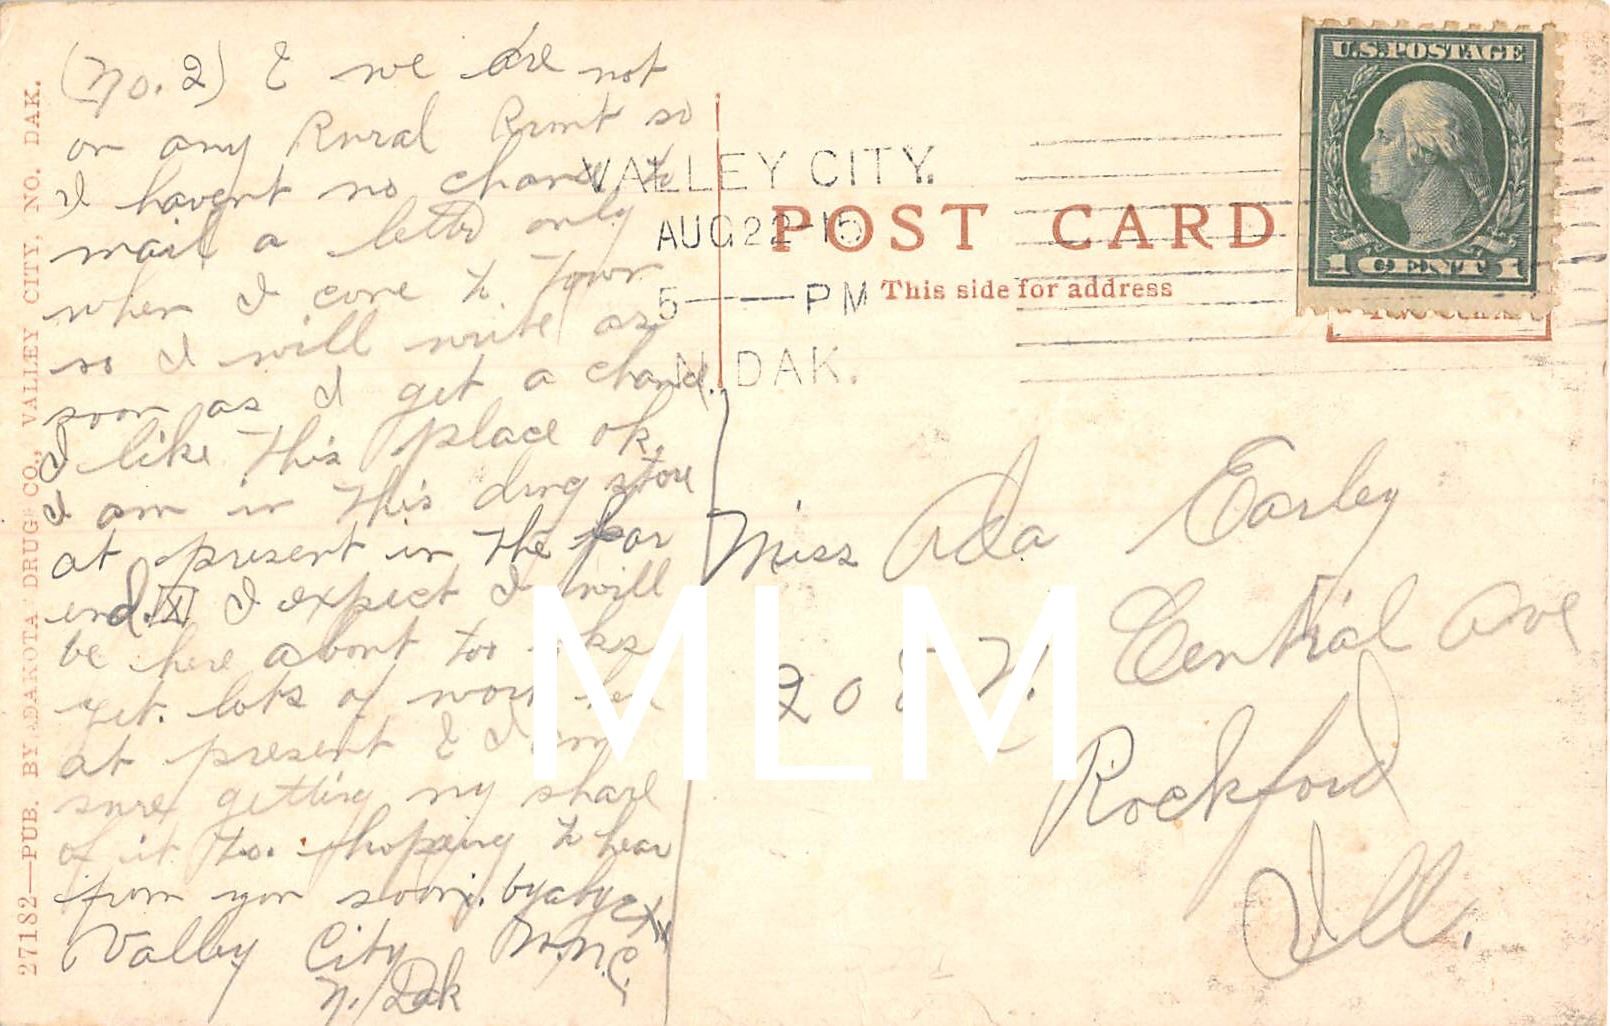 (No. 2) & we are not
on any Rural Rout so
I havent no chance to
mail a letter only
when I come to town
so I will write as
soon as I get a chance.
I like this place ok.
I am in this drug store
at present in the far
end. X I expect I will
be here about too
yet. lots of work
at present & I am
sure getting my share
of it too. hopeing to hear
from you soon. byabye
Valley City
N. Dak
VALLEY CITY.
AUG 22-15
5 PM
N. DAK.
POST CARD
This side for address
U.S. POSTAGE
1 CENT 1
Miss Ada Earley
208 N. Central Ave
Rockford
Ill.
27182—PUB. BY DAKOTA DRUG CO., VALLEY CITY, NO. DAK.
MLM